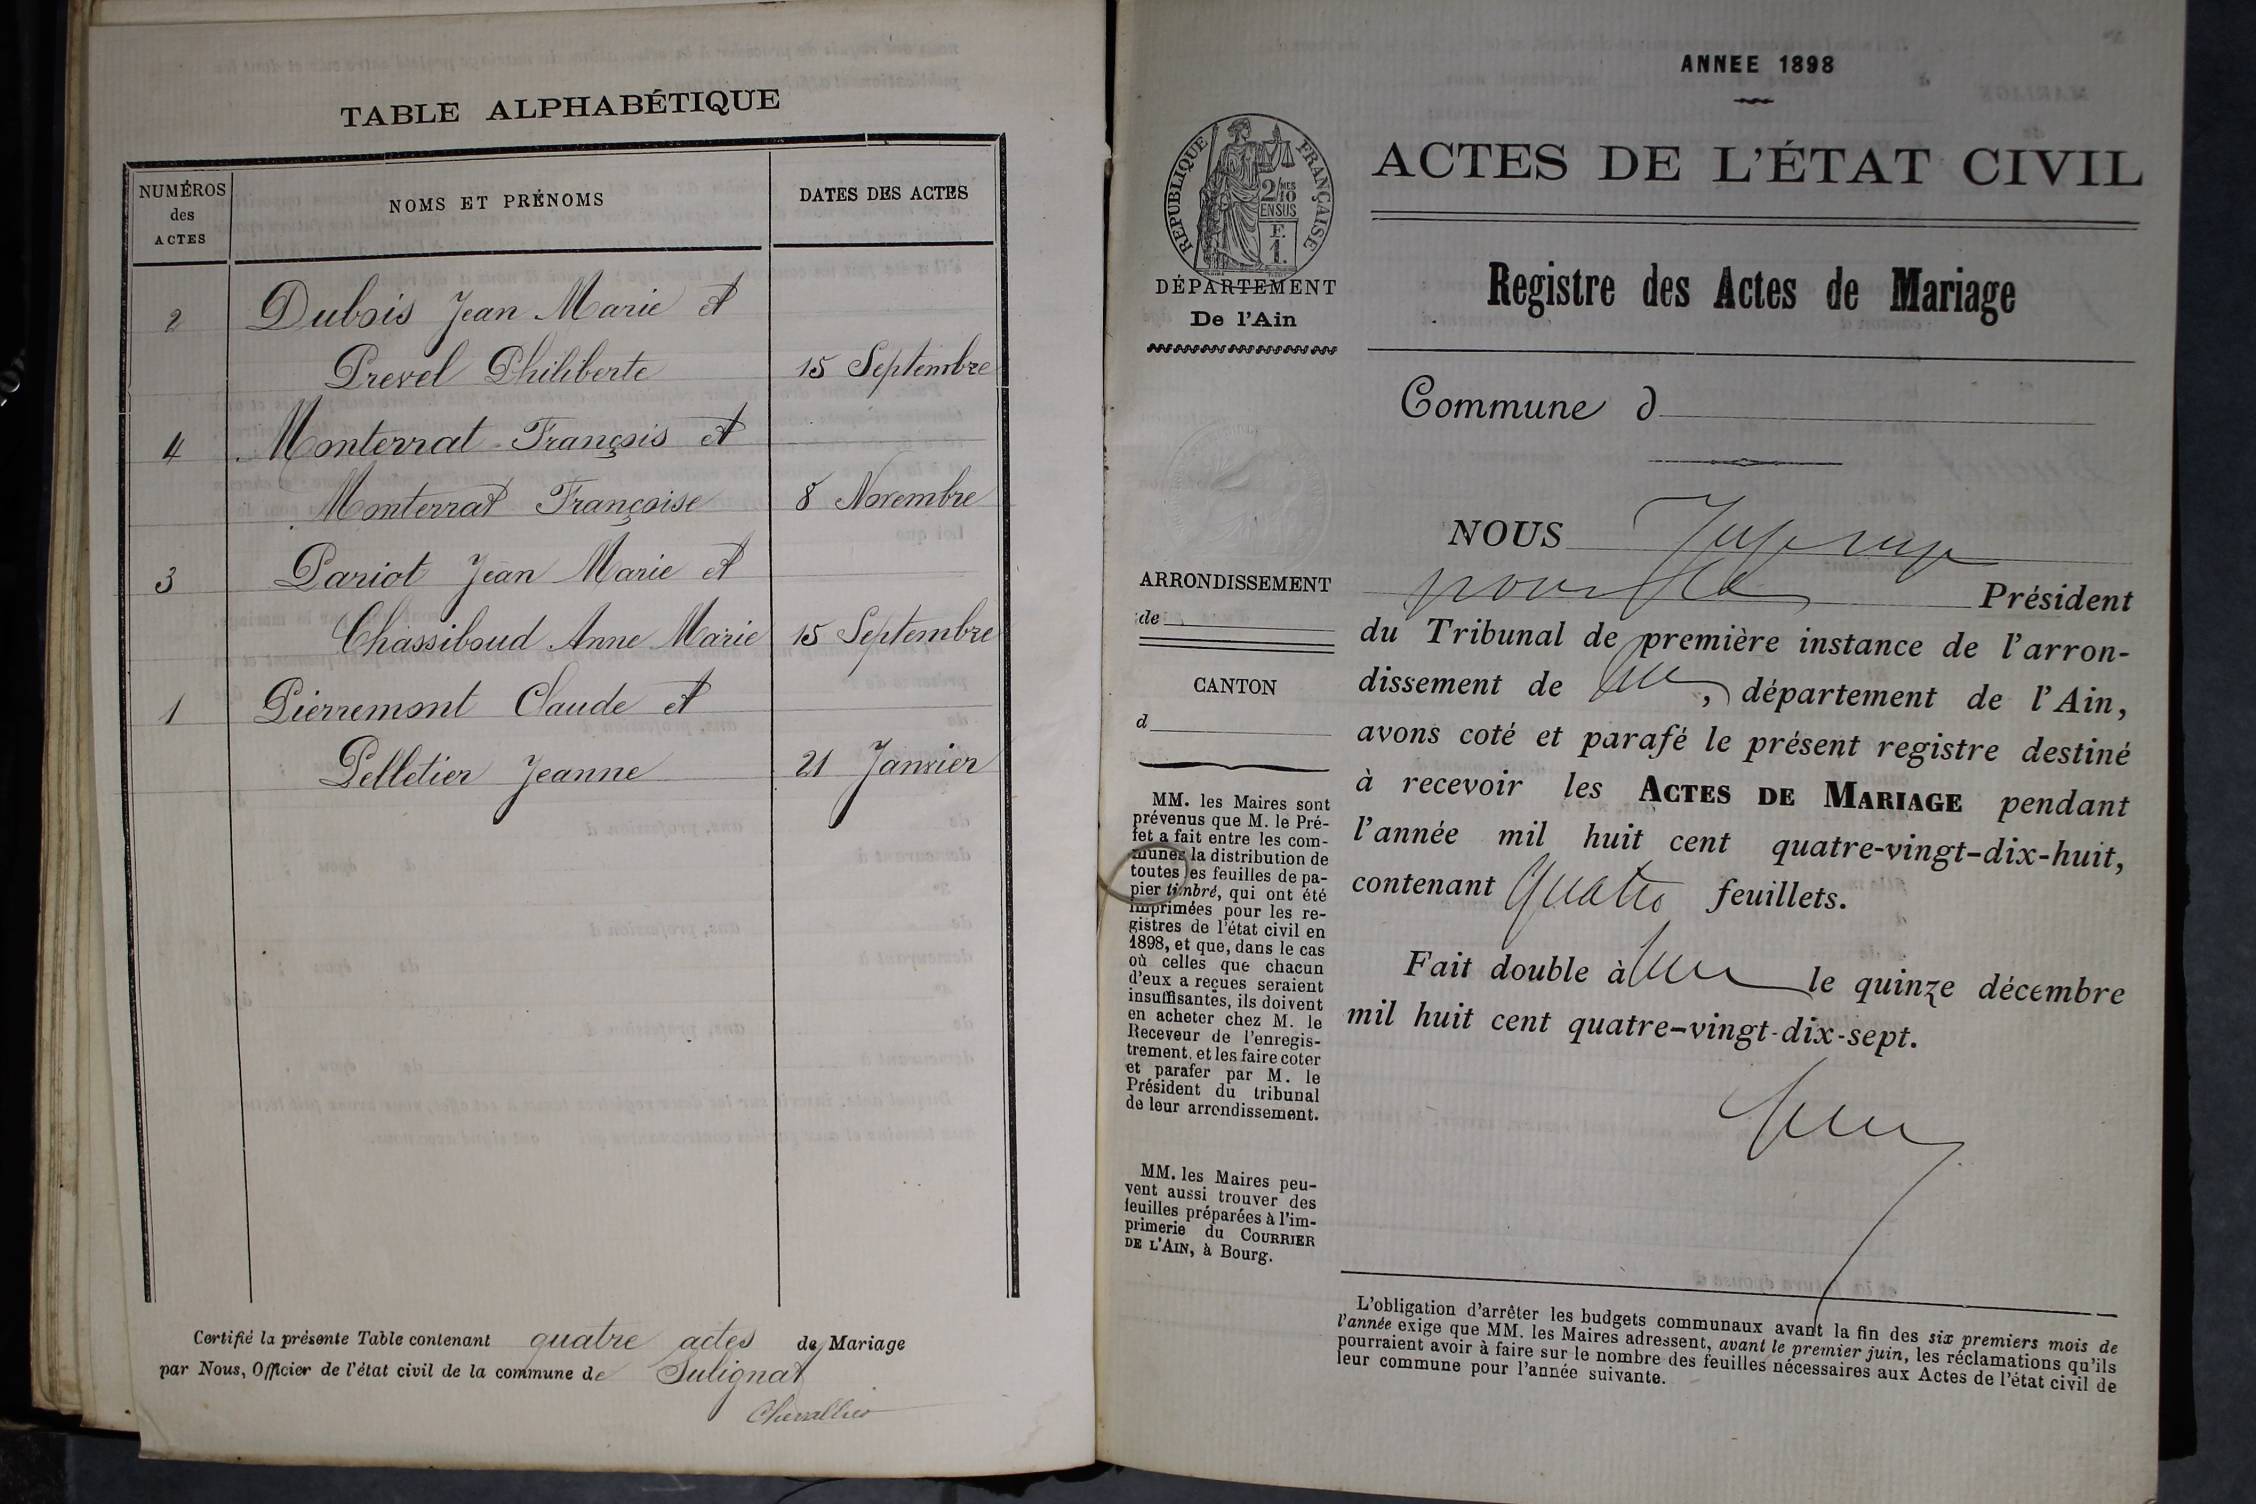 TABLE ALPHABÉTIQUE
NUMÉROS
des
ACTES
NOMS ET PRÉNOMS
DATES DES ACTES
2 Dubois Jean Marie et
Prevel Philiberte 15 Septembre
4 Monterrat François et
Monterrat Françoise 8 Novembre
3 Pariot Jean Marie et
Chassiboud Anne Marie 15 Septembre
1 Pierremont Claude et
Pelletier Jeanne 21 Janvier
Certifié la présente Table contenant quatre actes de Mariage
par Nous, Officier de l'état civil de la commune de Sulignat
Chevallier
ANNEE 1898
ACTES DE L'ÉTAT CIVIL
Registre des Actes de Mariage
RÉPUBLIQUE FRANÇAISE
2/10 MES
EN SUS
E.
1.
DÉPARTEMENT
De l'Ain
Commune d
ARRONDISSEMENT
de
CANTON
d
MM. les Maires sont
prévenus que M. le Pré-
fet a fait entre les com-
munes la distribution de
toutes les feuilles de pa-
pier timbré, qui ont été
imprimées pour les re-
gistres de l'état civil en
1898, et que, dans le cas
où celles que chacun
d'eux a reçues seraient
insuffisantes, ils doivent
en acheter chez M. le
Receveur de l'enregis-
trement, et les faire coter
et parafer par M. le
Président du tribunal
de leur arrondissement.
MM. les Maires peu-
vent aussi trouver des
feuilles préparées à l'im-
primerie du COURRIER
DE L'AIN, à Bourg.
NOUS
Président
du Tribunal de première instance de l'arron-
dissement de , département de l'Ain,
avons coté et parafé le présent registre destiné
à recevoir les ACTES DE MARIAGE pendant
l'année mil huit cent quatre-vingt-dix-huit,
contenant quatre feuillets.
Fait double à le quinze décembre
mil huit cent quatre-vingt-dix-sept.
L'obligation d'arrêter les budgets communaux avant la fin des six premiers mois de
l'année exige que MM. les Maires adressent, avant le premier juin, les réclamations qu'ils
pourraient avoir à faire sur le nombre des feuilles nécessaires aux Actes de l'état civil de
leur commune pour l'année suivante.